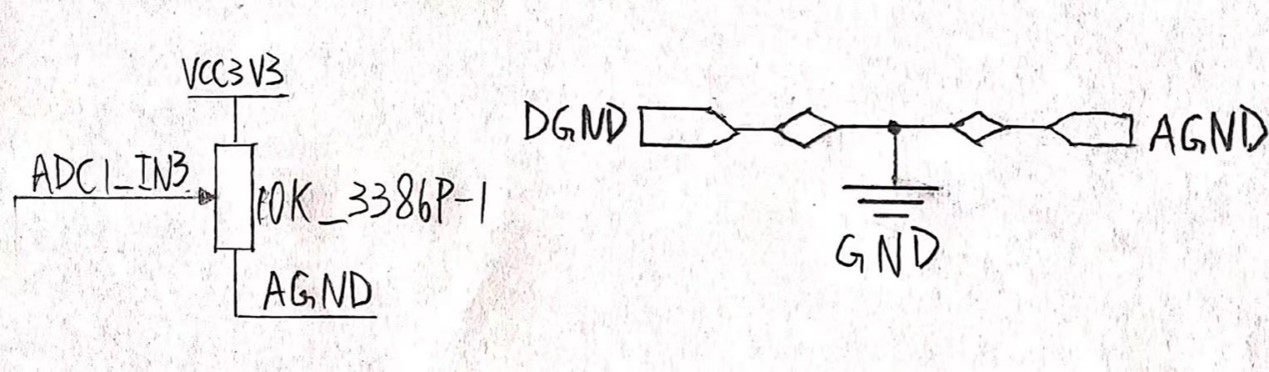 VCC3V3
ADC1_IN3
10K_3386P-1
AGND
DGND
AGND
GND